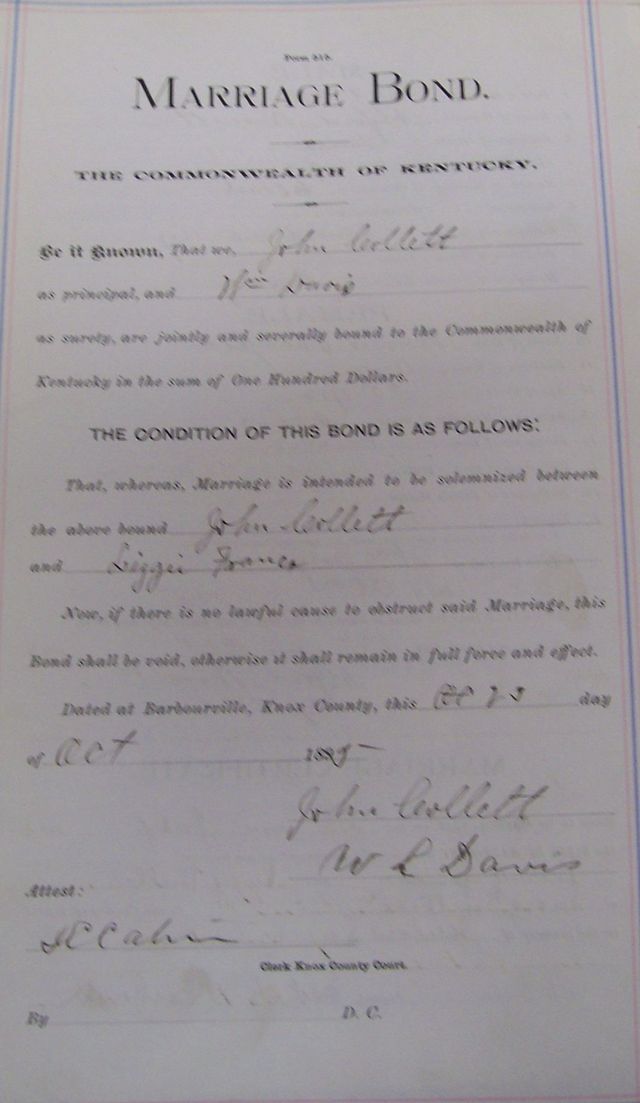 Form 213.
MARRIAGE BOND.
THE COMMONWEALTH OF KENTUCKY.
Be it Known, That we, John Collett
as principal, and Wm Davis
as surety, are jointly and severally bound to the Commonwealth of
Kentucky in the sum of One Hundred Dollars.
THE CONDITION OF THIS BOND IS AS FOLLOWS:
That, whereas, Marriage is intended to be solemnized between
the above bound John Collett
and Lizzie
Now, if there is no lawful cause to obstruct said Marriage, this
Bond shall be void, otherwise it shall remain in full force and effect.
Dated at Barbourville, Knox County, this day
of Oct 1895
John Collett
W L Davis
Attest:
Clerk Knox County Court.
By D. C.